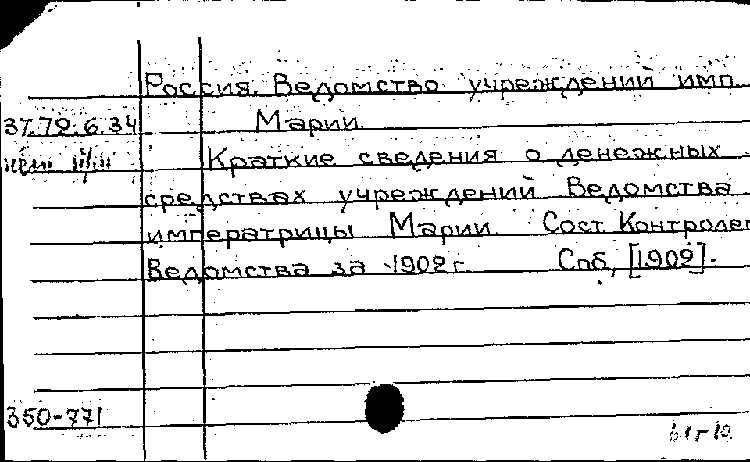 Россия. Ведомство учреждений имп.
37.79.6.34 Марии.
Краткие сведения о денежных
средствах учреждений Ведомства
императрицы Марии. Сост. Контролем
Ведомства за 1902 г. Спб, [1902].
350-771